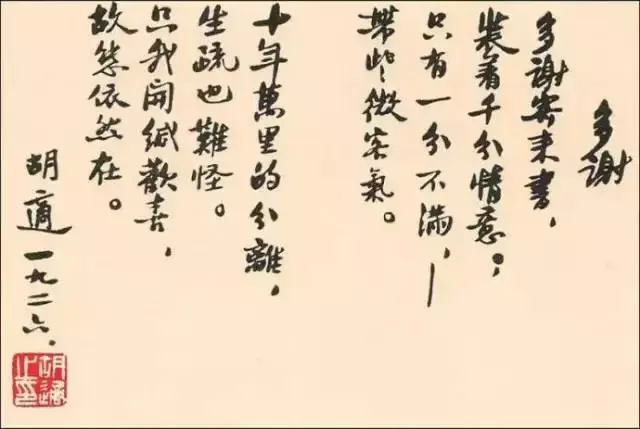 多謝
多謝寄來書，
裝着千分情意。，
只有一分不滿，—
帶些微客氣。
十年萬里的分離，
生疏也難怪。
只我開緘歡喜，
故態依然在。
胡適 一九二六、
胡適之